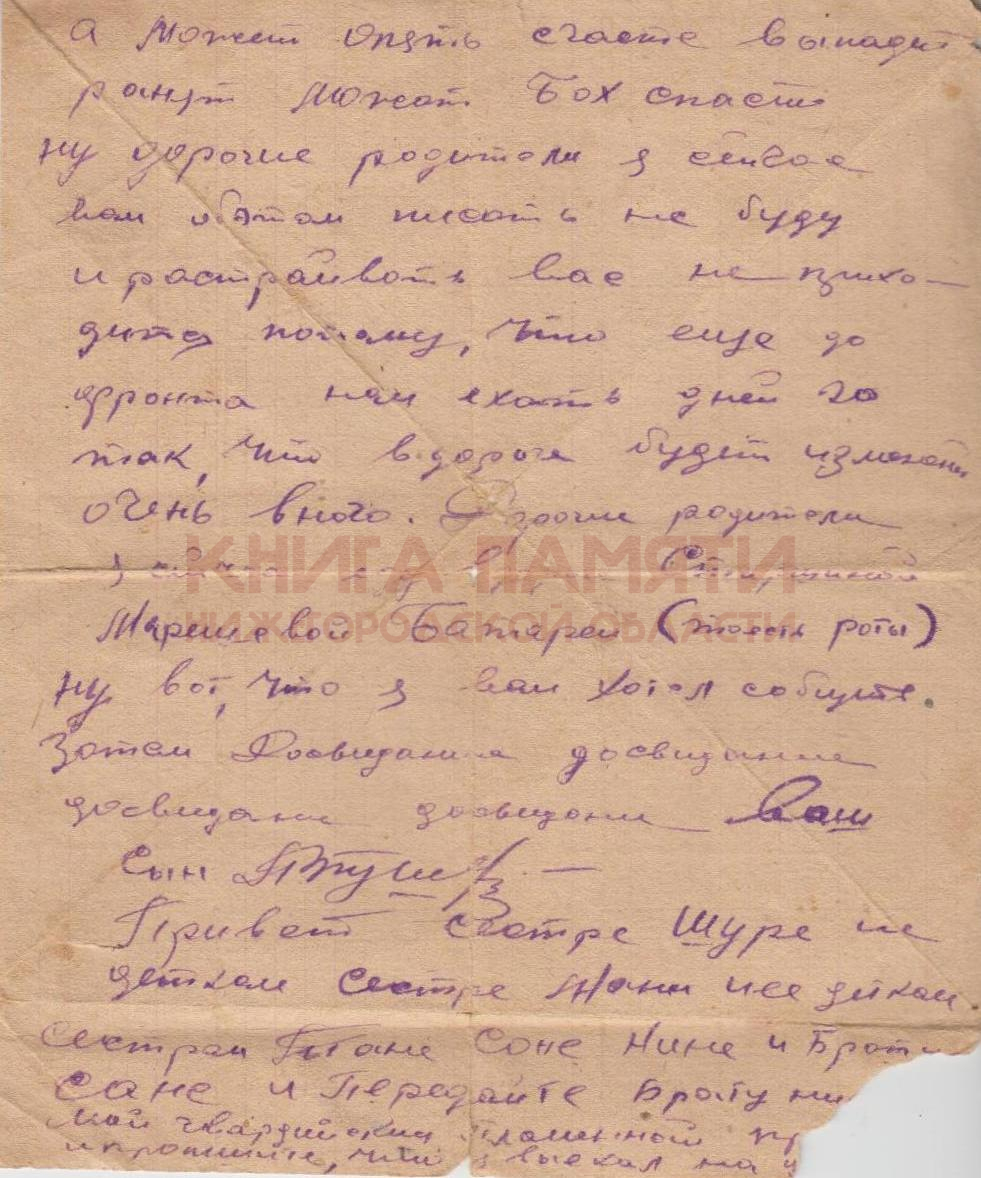 а Может опять счастье выпадит
ранут Можат Бох спасти
ну дорогие родители я сейчас
вам обэтом писать не буду
и растраивать вас не прихо-
дитя потому, что еще до
фронта нам ехать дней 20
так, что вдороге будет изменений
очень вного. Дорогие родители
я сейчас Старшиной
КНИГА ПАМЯТИ
НИЖЕГОРОДСКОЙ ОБЛАСТИ
Батареи (тоесть роты)
ну вот, что я вам хотел собщите.
Затем Досвидания досвидание
досвидани досвидани Ваш
Сын
Привет сестре Шуре и ее
деткам сестре Мани иее деткам
Сестрам Тане Соне Нине и Брату
Сане и Передайте Брату
мой гвардейский пламенной
ипропишите, что я выехал на